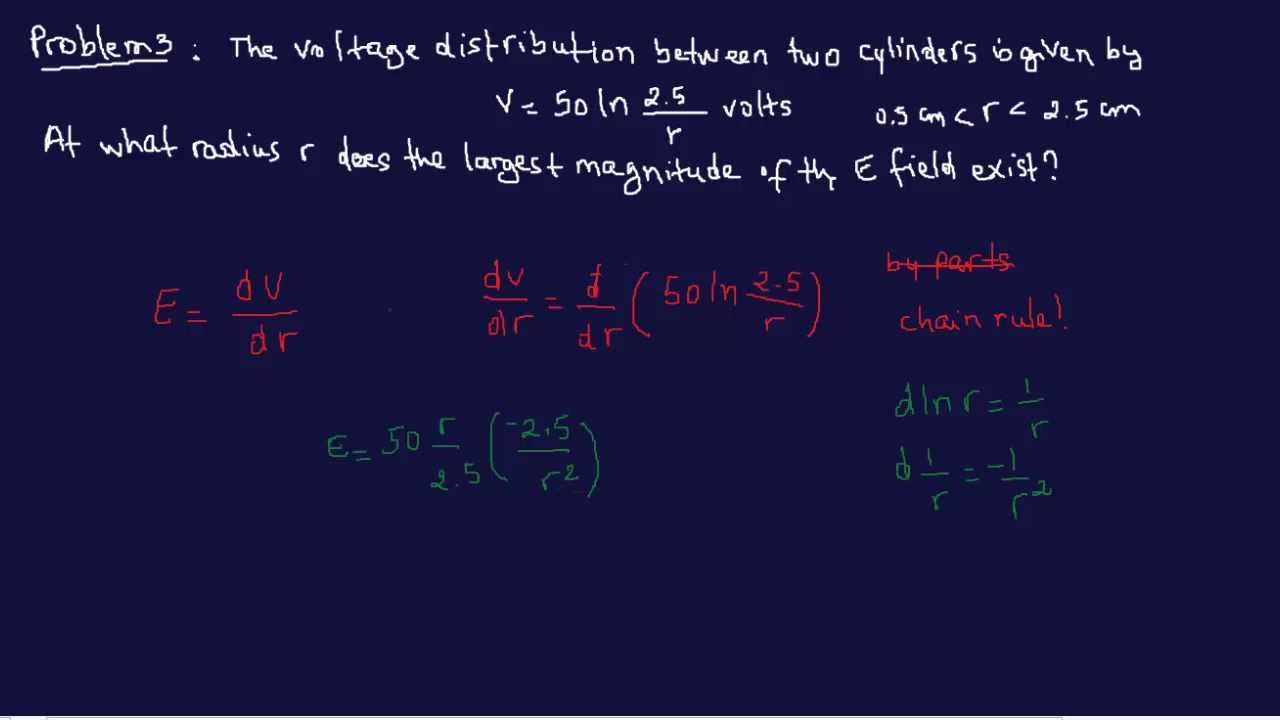 Problem 3 : The voltage distribution between two cylinders is given by
V = 50 ln 2.5/r volts 0.5 cm < r < 2.5 cm
At what radius r does the largest magnitude of th E field exist?
by parts
E = dV/dr dv/dr = d/dr (50 ln 2.5/r) chain rule!
d ln r = 1/r
E = 50 r/2.5 (-2.5/r²)
d 1/r = -1/r²